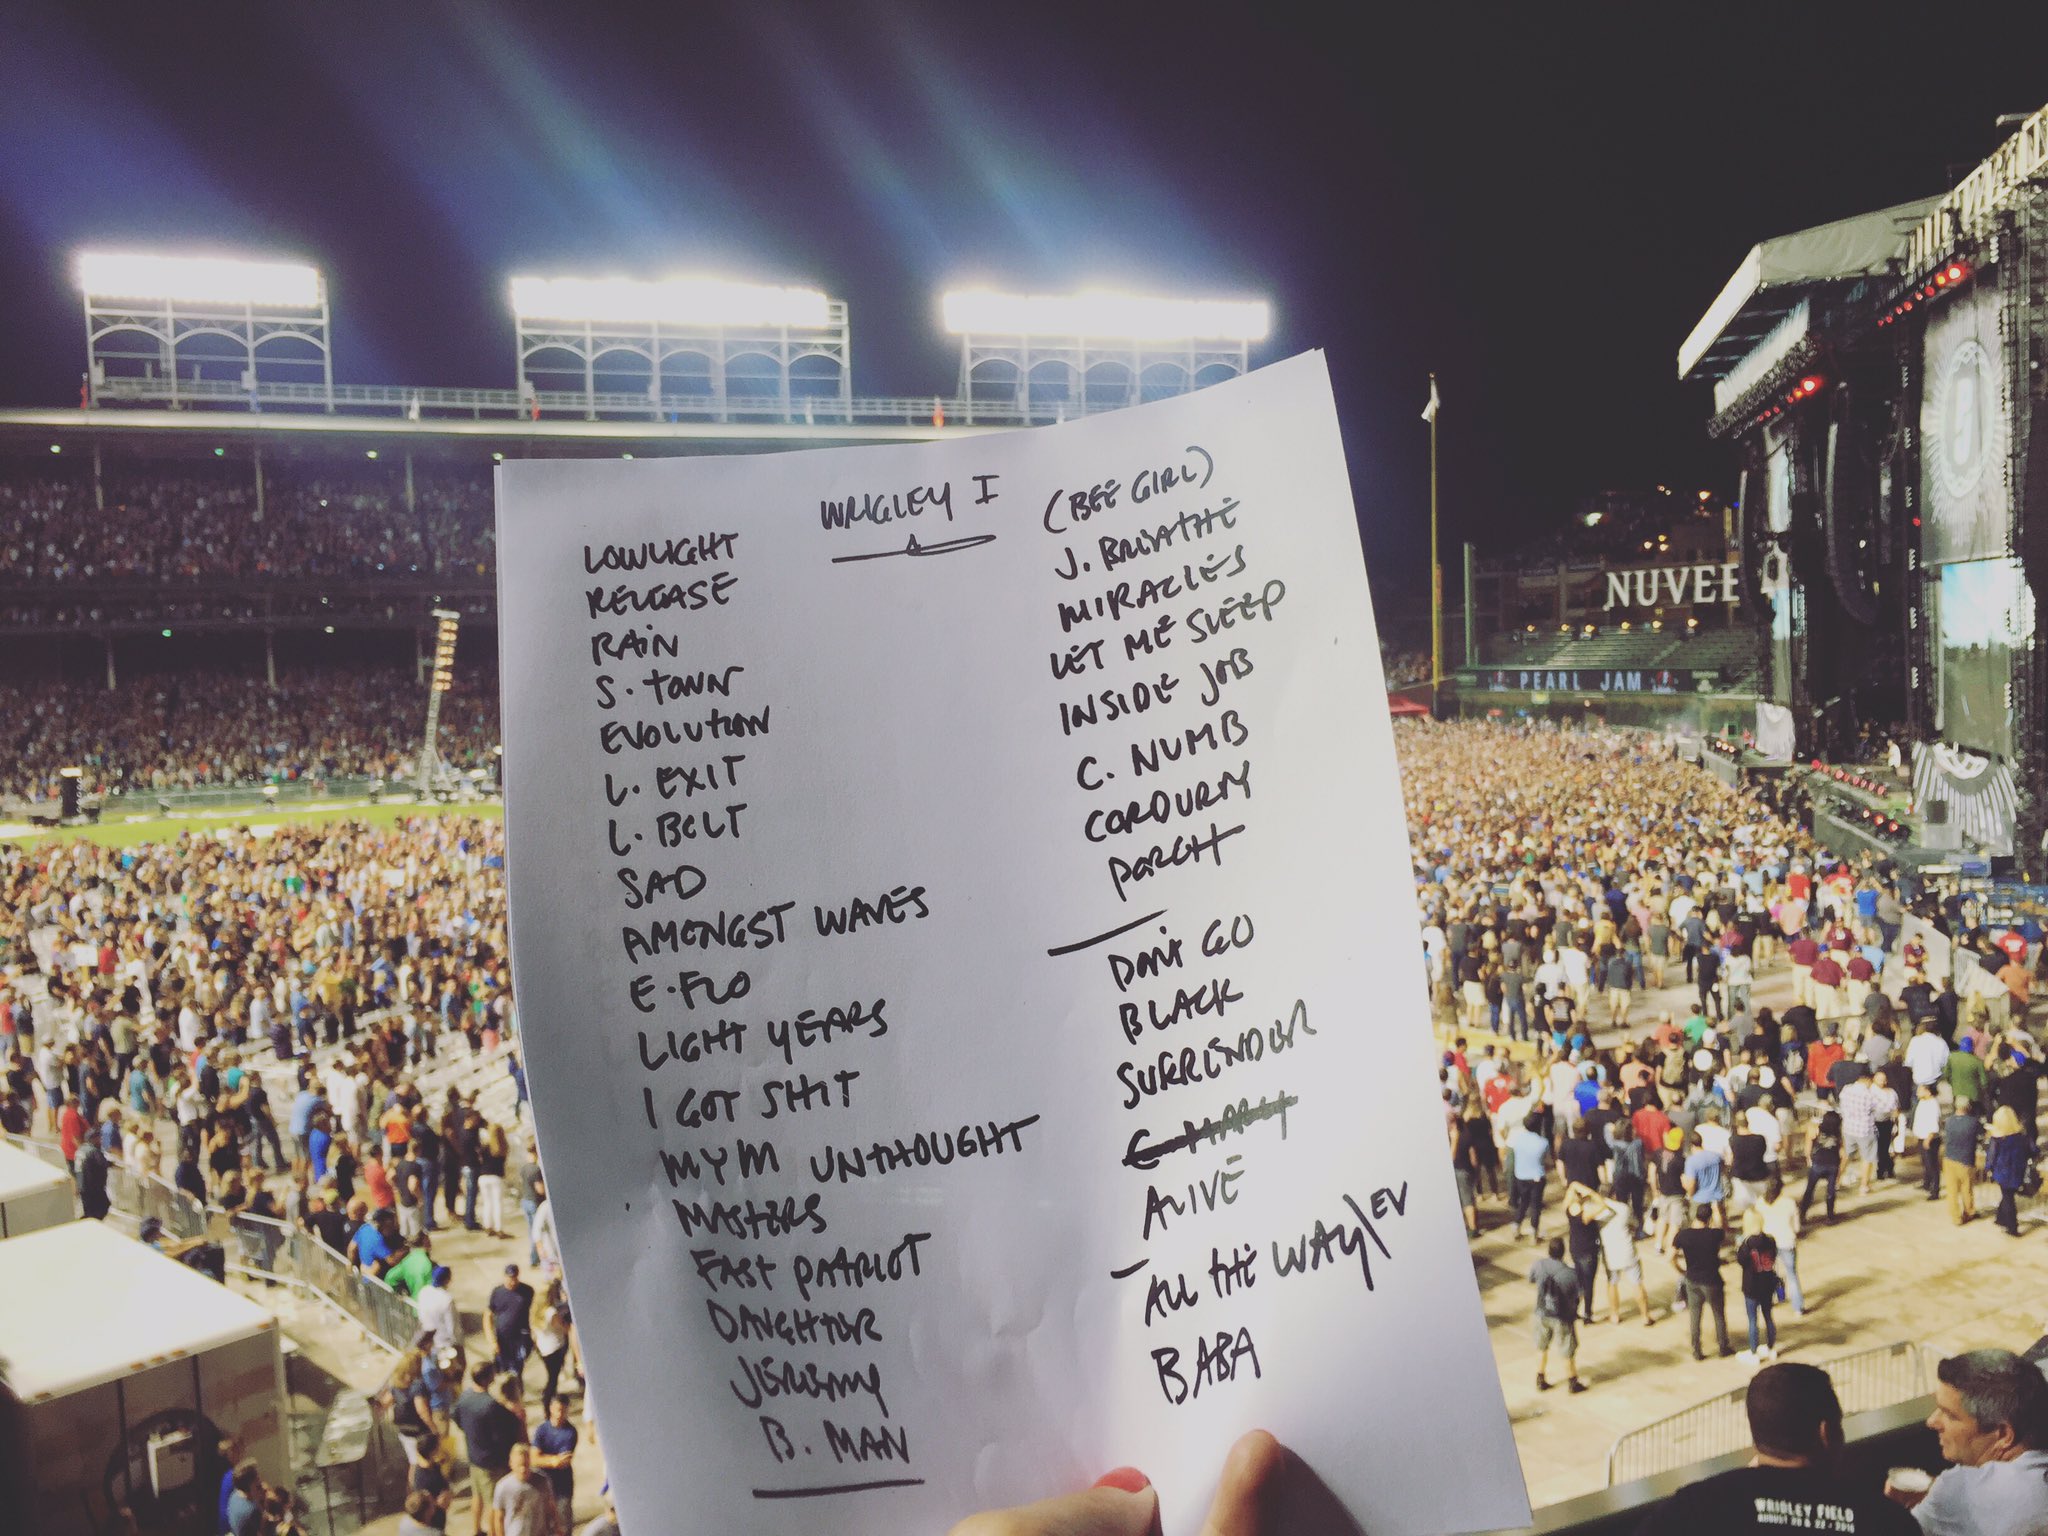 WRIGLEY I
LOWLIGHT
RELEASE
RAIN
S. TOWN
EVOLUTION
L. EXIT
L. BOLT
SAD
AMONGST WAVES
E. FLO
LIGHT YEARS
I GOT SHIT
MYM UNTHOUGHT
MASTERS
FAST PATRIOT
DAUGHTER
JEREMY
B. MAN
(BEE GIRL)
J. BREATHE
MIRACLES
LET ME SLEEP
INSIDE JOB
C. NUMB
CORDUROY
PORCH
DON'T GO
BLACK
SURRENDER
ALIVE
ALL THE WAY/EV
BABA
NUVEE
PEARL JAM
WRIGLEY FIELD
AUGUST 20 & 22 • 2016